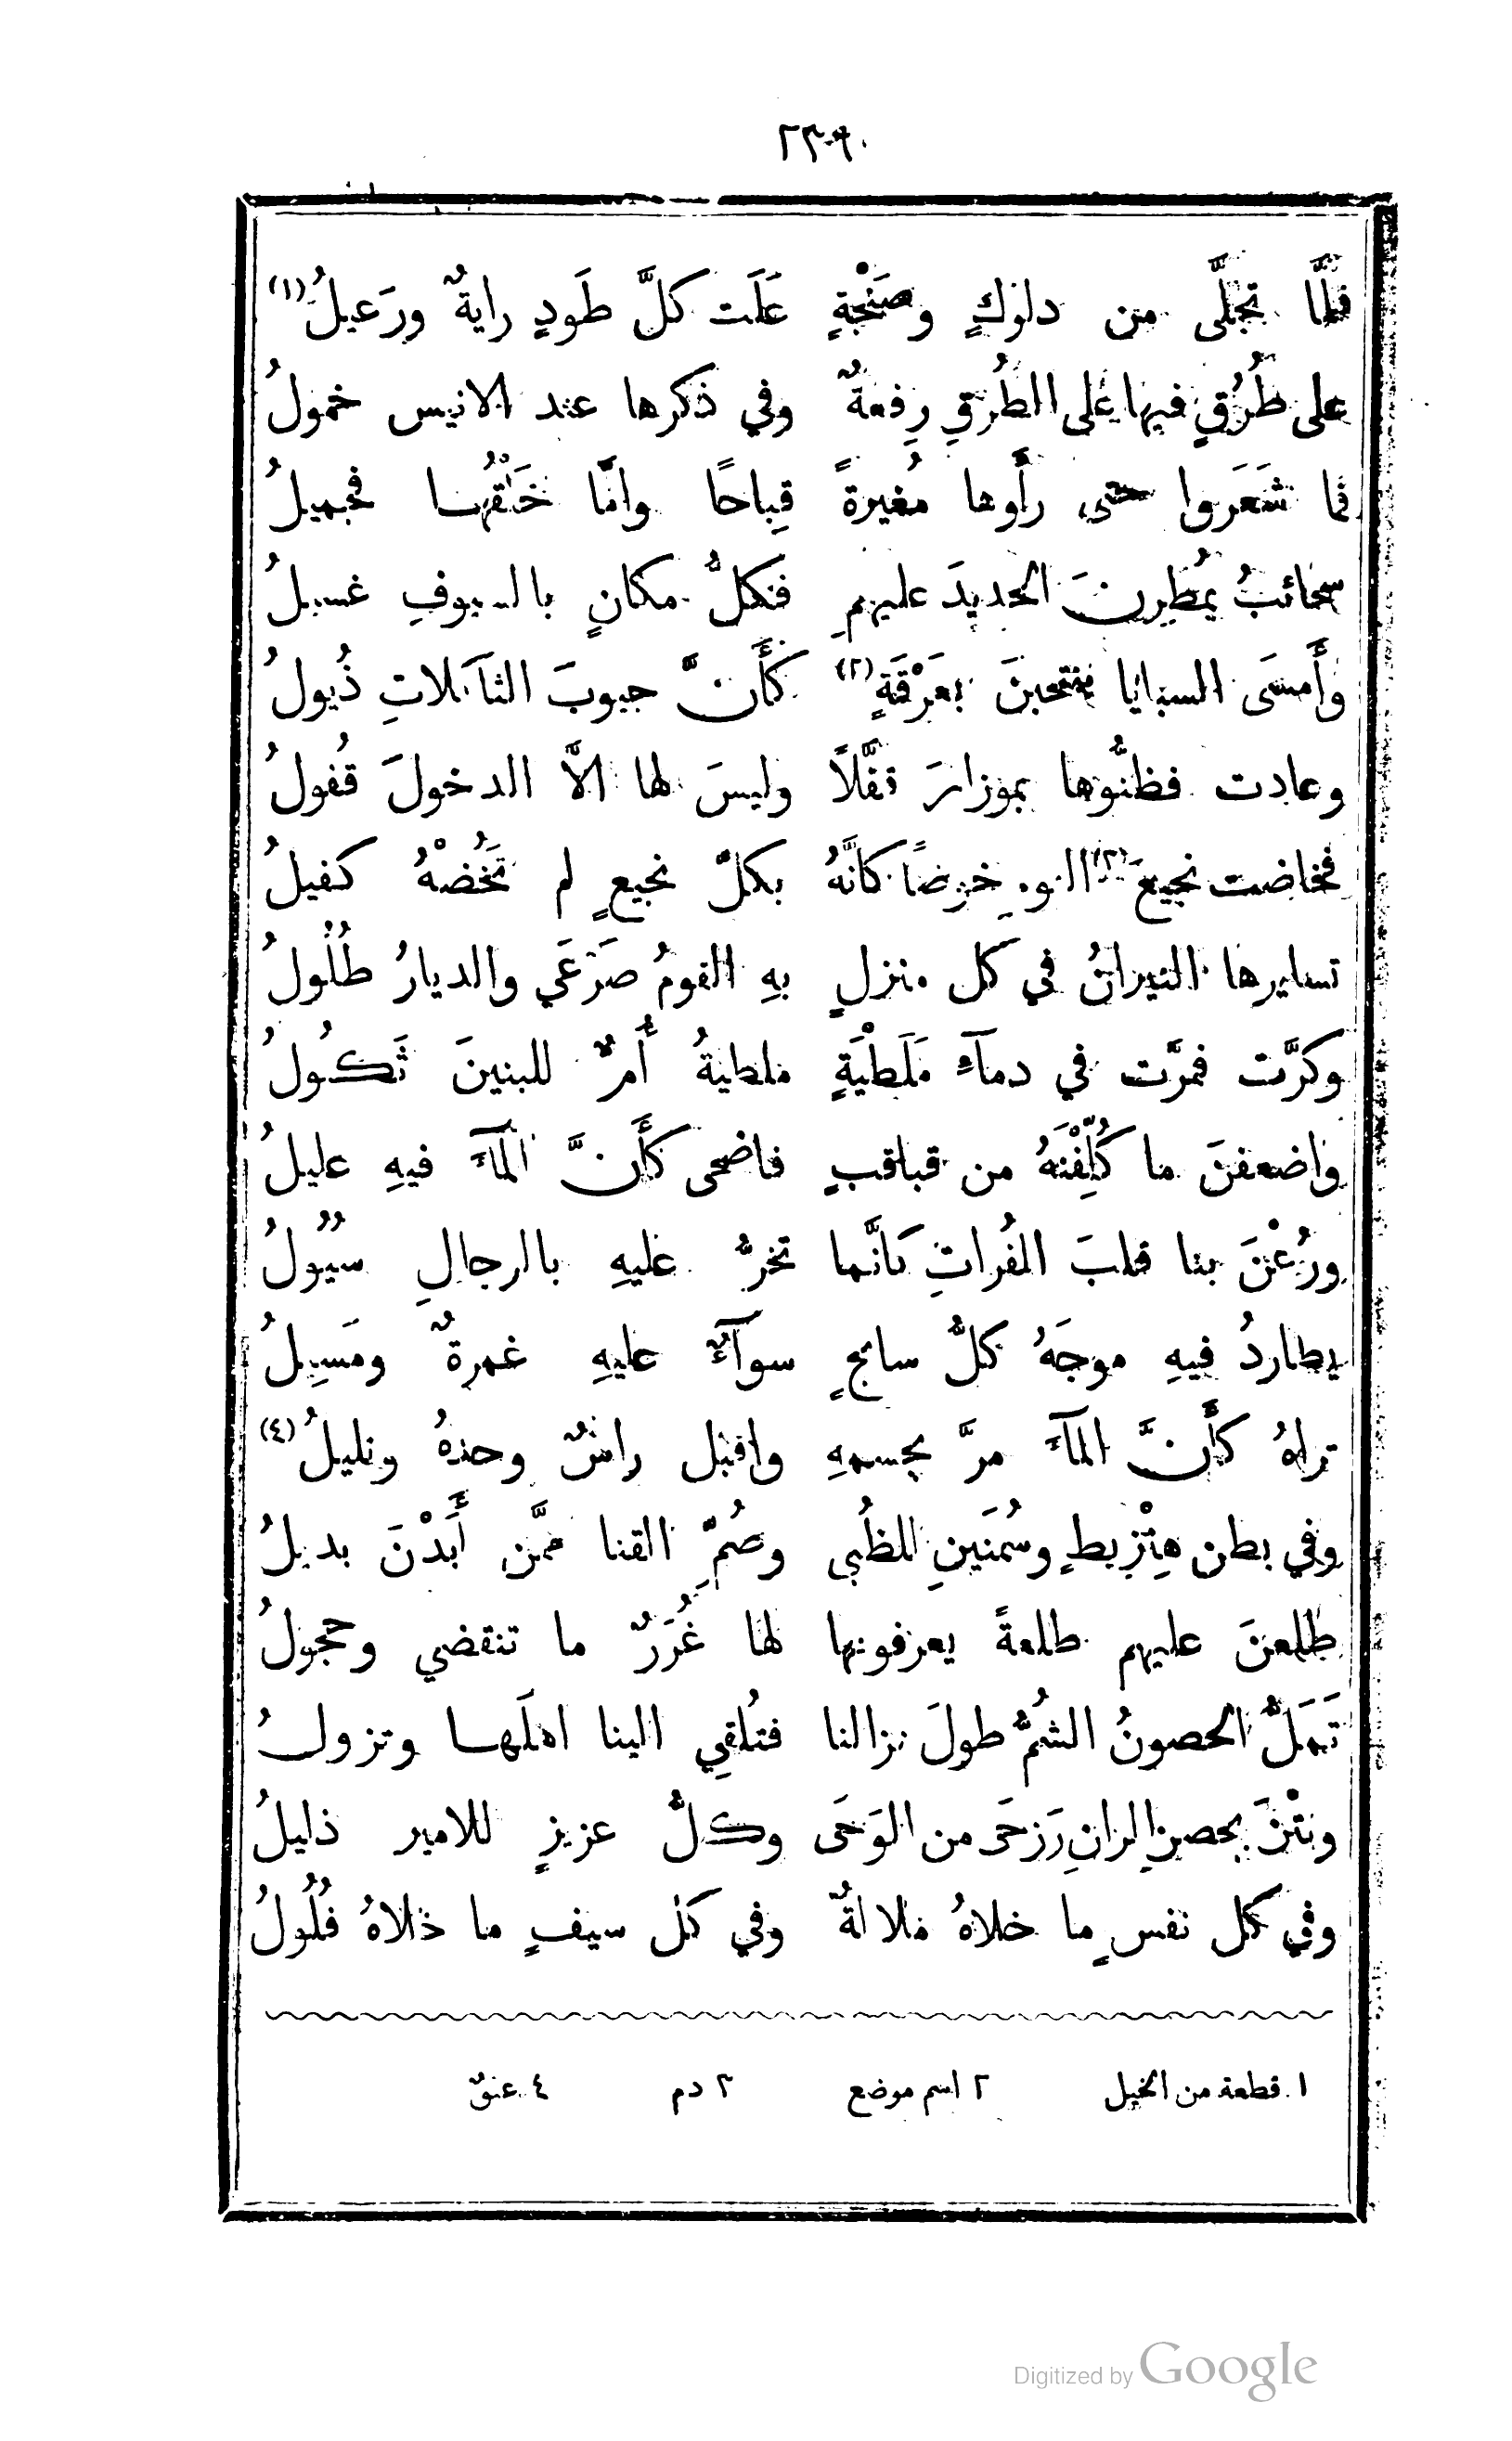 فلمَّا تجلَّى من دلوكٍ وصَنْجةٍ عَلَت كلَّ طَودٍ رايةٌ ورَعيلُ (١)
على طُرُقٍ فيها على الطُرْقِ رِفعةٌ وفي ذكرها عند الانيس خمولُ
فما شَعَروا حتى رأَوها مُغيرةً قِباحًا وامَّا خَلْقُهـا فجميلُ
سحائبُ يُمْطِرنَ الحديدَ عليهمِ فكلُّ مكانٍ بالسيوفِ غسيلُ
وأَمسَى السبايا ينتحبنَ بعَرْقَةٍ (٢) كأَنَّ جيوبَ الثاكلاتِ ذُيولُ
وعادت فظنُّوها بموزارَ قفَّلًا وليسَ لها الاَّ الدخولَ قُفولُ
فخاضت نجيعَ (٣) خوضًا كأنَّهُ بكلّ نجيعٍ لم تَخُضْهُ كفيلُ
تسايرها النيرانُ في كل منزلٍ بهِ القومُ صَرْعَى والديارُ طُلُولُ
وكرَّت فمرَّت في دمآءِ مَلَطْيَةٍ ملطيةُ أُمٌّ للبنينَ ثَكُولُ
واضعفنَ ما كُلِّفْنَهُ من قباقبٍ فاضحى كأَنَّ المآءَ فيهِ عليلُ
ورُعْنَ بنا قلبَ الفُراتِ كانَّما تخرُّ عليهِ بالرجالِ سُيُولُ
يطاردُ فيهِ موجَهُ كلُّ سابحٍ سوآءٌ عليهِ غمرةٌ ومَسِيلُ
تراهُ كأَنَّ المآءَ مرَّ بجسمهِ واقبل راسٌ وحدهُ وتليلُ (٤)
وفي بطن هِنْزيطٍ وسُمْنَينِ للظُبى وصُمِّ القنا ممَّن أَبَدْنَ بديلُ
طلعنَ عليهم طلعةً يعرفونها لها غُرَرٌ ما تنقضي وحجولُ
تَمَلُّ الحصونُ الشُمُّ طولَ نزالنا فتُلقي الينا اهلَهـا وتزولُ
وبتْنَ بحصن الرانِ رَزحَى من الوَحَى وكلُّ عزيزٍ للامير ذليلُ
وفي كل نفسٍ ما خلاهُ ملالةٌ وفي كل سيفٍ ما خلاهُ فُلُولُ
١ قطعة من الخيل ٢ اسم موضع ٣ دم ٤ عنقٌ
Digitized by Google